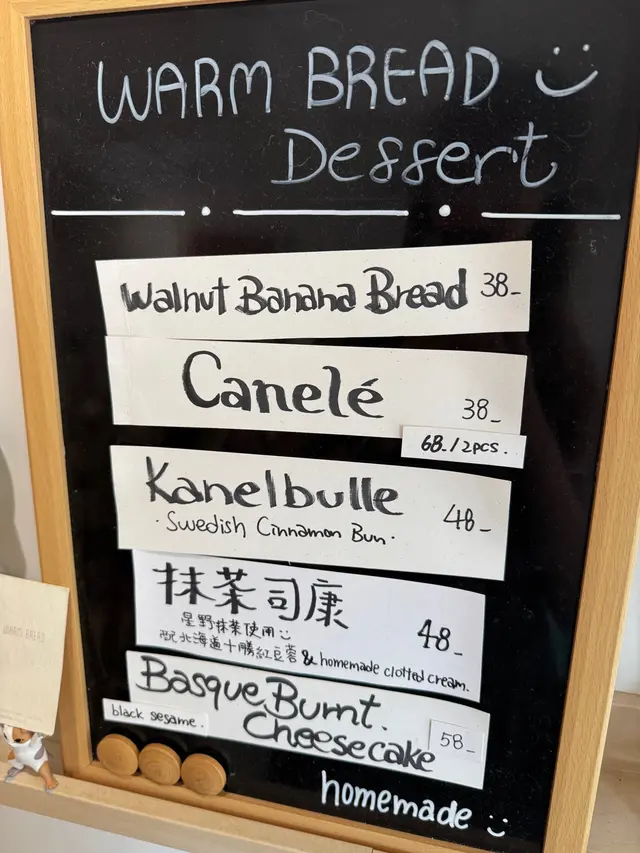 WARM BREAD
Dessert
Walnut Banana Bread 38-
Canelé 38-
68-/2pcs.
Kanelbulle 48-
·Swedish Cinnamon Bun·
抹茶司康 48-
星野抹茶使用
配北海道十勝紅豆蓉 & homemade clotted cream.
Basque Burnt.
black sesame.
Cheesecake 58-
homemade
WARM BREAD